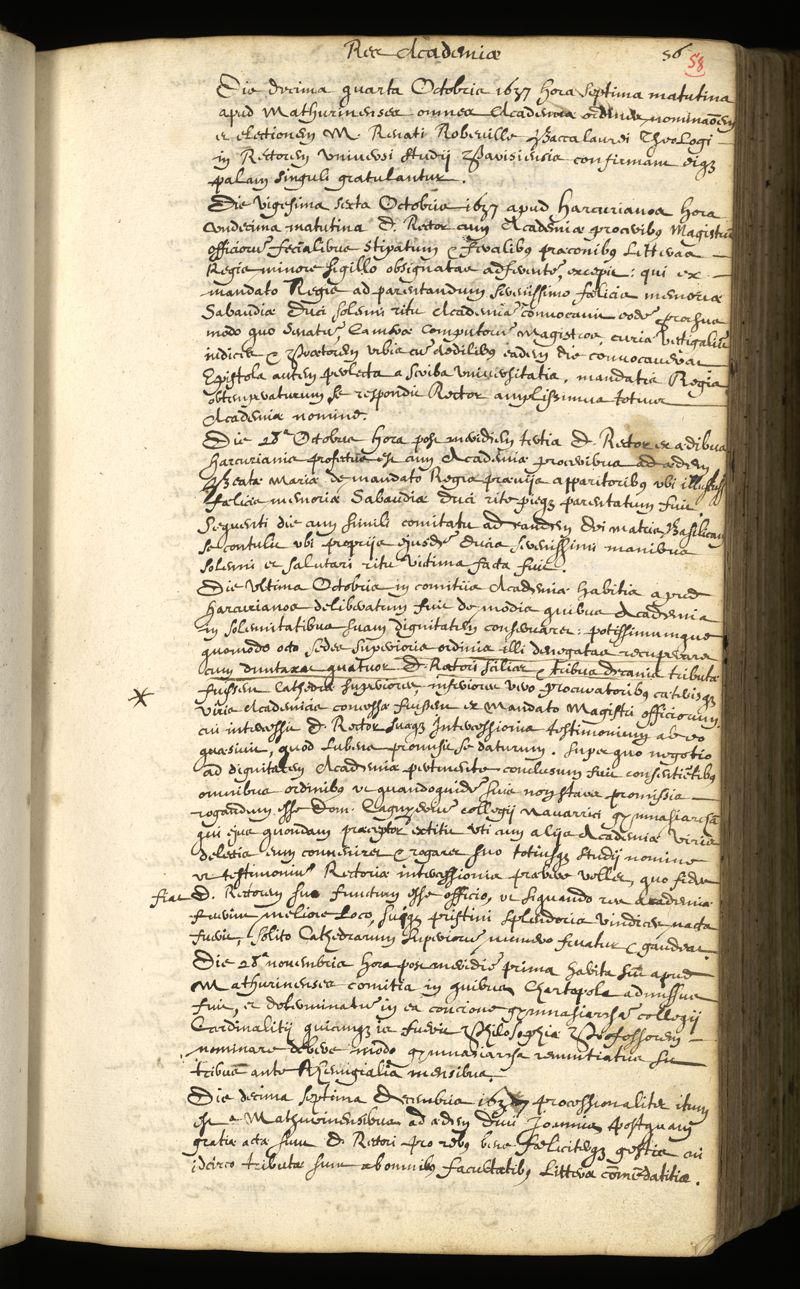 Res Academiæ 56
58
Die decima quarta Octobris 1637 hora septima matutina
apud Mathurinenses omnes Academiæ ordines nominaōem
et electionem M. Renati Roberville Baccalaurei Theologi
in Rectorem Universi Studij Parisiensis confirmant eiq₃
palam singuli gratulantur.
Die vigesima sexta Octobris 1637 apud Harcurianos hora
undecima matutina D. Rector cum Academiæ proceribus Magistrū
officiorū fecialibus stipatum & præconibus Litteras
Regis minore sigillo obsignatas adferente excepit: qui ex
mandato Regis ad parentandum serenissimo fælicis memoriæ
Sabaudiæ Duci solemni ritu Academiā convocavit eodē prorsus
modo quo Senatū, Cameræ Computorū Magistros, curiæ vectigaliū
iudices & Prætorem urbis cū ædilibus eadem die convocaverat
Epistola autem perlecta a scriba Universitatis, mandatis Regis
obtemperaturum se respondit Rector amplissimus totius
Academiæ nomine.
Die 28ᵃ Octobris hora post meridiem tertia D. Rector ex ædibus
Harcurianis profectus est cum Academiæ proceribus ad ædem
Beatæ Mariæ de mandato Regis prævijs apparitoribus ubi
fælicis memoriæ Sabaudiæ duci rite pieq₃ parentatum fuit.
Sequenti die cum simili comitatu ad eandem Dei matris Basilicam
se contulit ubi proprijs ejusdē ducis serenissimi manibus
solemni et salutari ritu victima facta fuit.
Die ultima Octobris in comitijs Academiæ habitis apud
Harcurianos deliberatum fuit de modis quibus Academia
in solemnitatibus suam dignitatem conservaret: potissimumque
quomodo octo sedes superioris ordinis illi denegatas recuperaret
cum duntaxat quatuor D. Rectori scilicet & tribus decanis tributæ
fuissent Cathedræ superiores, inferiores vero procuratoribus cæterisq₃
viris Academicis concessæ fuissent ex Mandato Magistri officiorum
cui intercessit D. Rector suæq₃ Intercessionis testimonium ab eo
quæsivit, quod lubens promisit se daturum. Super quo negotio
ad dignitatem Academiæ pertinente conclusum fuit consentientibus
omnibus ordinibus ut quandoquidē suis non staret promissis
rogandum esse Dom. collegij Navarrici gymnasiarchā
qui ejus quondam præceptor extitit uti cum alijs Academiæ viris
delectis eum conveniret & rogaret suo totiusq₃ Studij nomine
ut testimoniū Rectoriæ intercessionis præbere vellet, quo fidem
fiat D. Rectorem suo functum esse officio, ut siquando res Academiæ
fuerint meliore loco, suiq₃ pristini splendoris vindicem nacta
fuerit, solito Cathedrarum superiorū numero fruatur & gaudeat.
Die 28ᵃ novembris hora post meridiē prima habita sūt apud
Mathurinenses comitia in quibus Chartopola admissus
fuit, et determinatū in ea concione gymnasiarchā collegij
Cardinalitij quicunq₃ is fuerit Philosophiæ Professorem
nominare debere modo gymnasiarcha renuntiatus sit
tribus ante Rhemigialia mensibus.
Die decima septima Decembris 1637 processionaliter itum
est a Mathurinensibus ad ædem Divi Joannis postquam
gratiæ actæ sunt D. Rectori pro rebus bene fæliciterq₃ gestis cui
idcirco tributæ sunt ab omnibus facultatibus Litteræ cōmēdatitiæ.